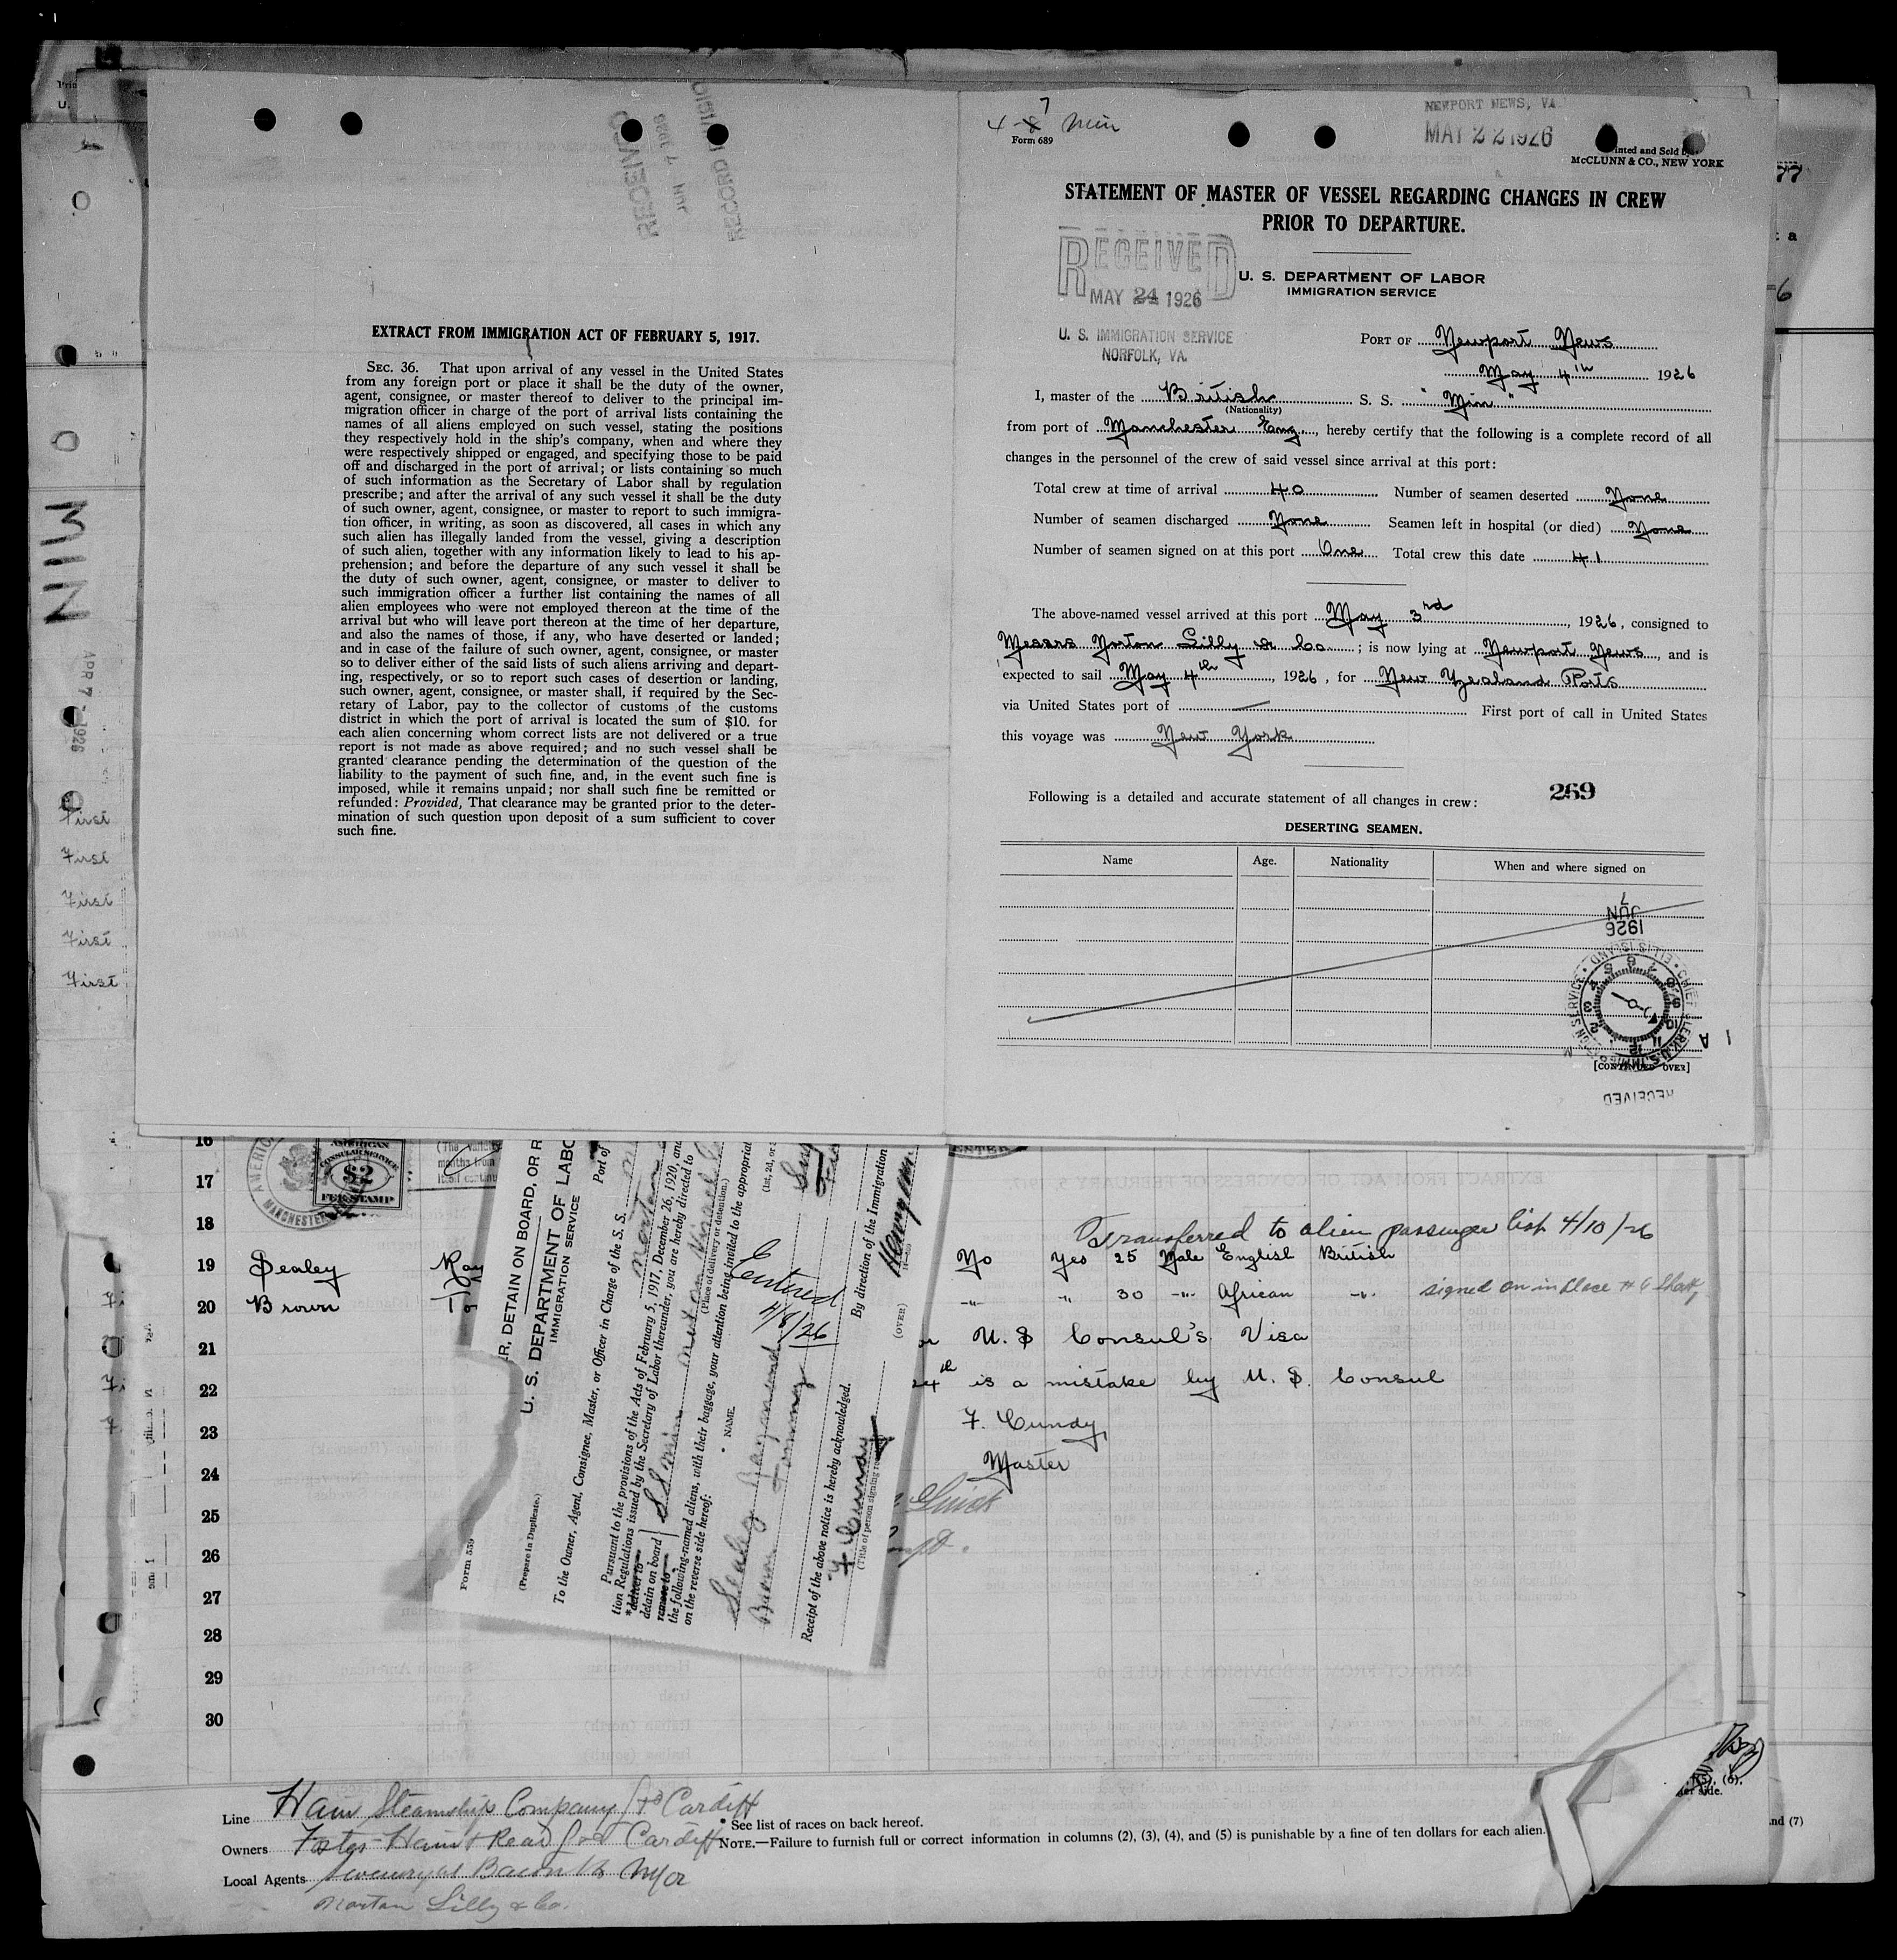 EXTRACT FROM IMMIGRATION ACT OF FEBRUARY 5, 1917.
SEC. 36. That upon arrival of any vessel in the United States
from any foreign port or place it shall be the duty of the owner,
agent, consignee, or master thereof to deliver to the principal im-
migration officer in charge of the port of arrival lists containing the
names of all aliens employed on such vessel, stating the positions
they respectively hold in the ship's company, when and where they
were respectively shipped or engaged, and specifying those to be paid
off and discharged in the port of arrival; or lists containing so much
of such information as the Secretary of Labor shall by regulation
prescribe; and after the arrival of any such vessel it shall be the duty
of such owner, agent, consignee, or master to report to such immigra-
tion officer, in writing, as soon as discovered, all cases in which any
such alien has illegally landed from the vessel, giving a description
of such alien, together with any information likely to lead to his ap-
prehension; and before the departure of any such vessel it shall be
the duty of such owner, agent, consignee, or master to deliver to
such immigration officer a further list containing the names of all
alien employees who were not employed thereon at the time of the
arrival but who will leave port thereon at the time of her departure,
and also the names of those, if any, who have deserted or landed;
and in case of the failure of such owner, agent, consignee, or master
so to deliver either of the said lists of such aliens arriving and depart-
ing, respectively, or so to report such cases of desertion or landing,
such owner, agent, consignee, or master shall, if required by the Sec-
retary of Labor, pay to the collector of customs of the customs
district in which the port of arrival is located the sum of $10. for
each alien concerning whom correct lists are not delivered or a true
report is not made as above required; and no such vessel shall be
granted clearance pending the determination of the question of the
liability to the payment of such fine, and, in the event such fine is
imposed, while it remains unpaid; nor shall such fine be remitted or
refunded: Provided, That clearance may be granted prior to the deter-
mination of such question upon deposit of a sum sufficient to cover
such fine.
RECEIVED
JUN 7 1926
MIN
APR 7 - 1926
First
First
First
First
First
7
4 - Min
Form 689
NEWPORT NEWS, VA.
MAY 22 1926
Printed and Sold by
McCLUNN & CO., NEW YORK
STATEMENT OF MASTER OF VESSEL REGARDING CHANGES IN CREW
PRIOR TO DEPARTURE.
RECEIVED
MAY 24 1926
U. S. IMMIGRATION SERVICE
NORFOLK, VA.
U. S. DEPARTMENT OF LABOR
IMMIGRATION SERVICE
PORT OF Newport News
May 4th 1926
I, master of the British S. S. "Min"
(Nationality)
from port of Manchester Eng., hereby certify that the following is a complete record of all
changes in the personnel of the crew of said vessel since arrival at this port:
Total crew at time of arrival 40 Number of seamen deserted None
Number of seamen discharged None Seamen left in hospital (or died) None
Number of seamen signed on at this port One Total crew this date 41
The above-named vessel arrived at this port May 3rd, 1926, consigned to
Messrs Norton Lilly & Co; is now lying at Newport News, and is
expected to sail May 4th, 1926, for New Zealand Ports
via United States port of — First port of call in United States
this voyage was New York
Following is a detailed and accurate statement of all changes in crew: 269
DESERTING SEAMEN.
Name Age. Nationality When and where signed on
JUN 7
1926
[CONTINUED OVER]
RECEIVED
16
17
18 Transferred to alien passenger list 4/10/26
19 Sealey Ray No Yes 25 Male English British
20 Brown -"- " 30 -"- African -"- signed on in place #6
21 U.S Consul's Visa
22 24th is a mistake by U.S. Consul
23 F. Cundy
24 Master
25
26
27
28
29
30
AMERICAN
CONSULAR SERVICE
$2
FEE STAMP
MANCHESTER
Form 559
(Prepare in Duplicate.)
R, DETAIN ON BOARD, OR R
U. S. DEPARTMENT OF LABO
IMMIGRATION SERVICE
Port of
To the Owner, Agent, Consignee, Master, or Officer in Charge of the S. S.
Pursuant to the provisions of the Acts of February 5, 1917, December 26, 1920, and
tion Regulations issued by the Secretary of Labor thereunder, you are hereby directed to
*deliver to
detain on board SS Min
remove to
(Place of delivery or detention.)
the following-named aliens, with their baggage, your attention being invited to the appropriat
on the reverse side hereof:
NAME.
(1st, 2d, or
Sealey Raymond
Brown Tommy
Entered
4/8/26
By direction of the Immigration
Henry
(OVER)
Receipt of the above notice is hereby acknowledged.
F Cundy
(Title of person signing
Line Hain Steamship Company Ltd Cardiff
* See list of races on back hereof.
Owners Foster Hain & Read Ltd Cardiff
NOTE.—Failure to furnish full or correct information in columns (2), (3), (4), and (5) is punishable by a fine of ten dollars for each alien.
Local Agents
Norton Lilly & Co.